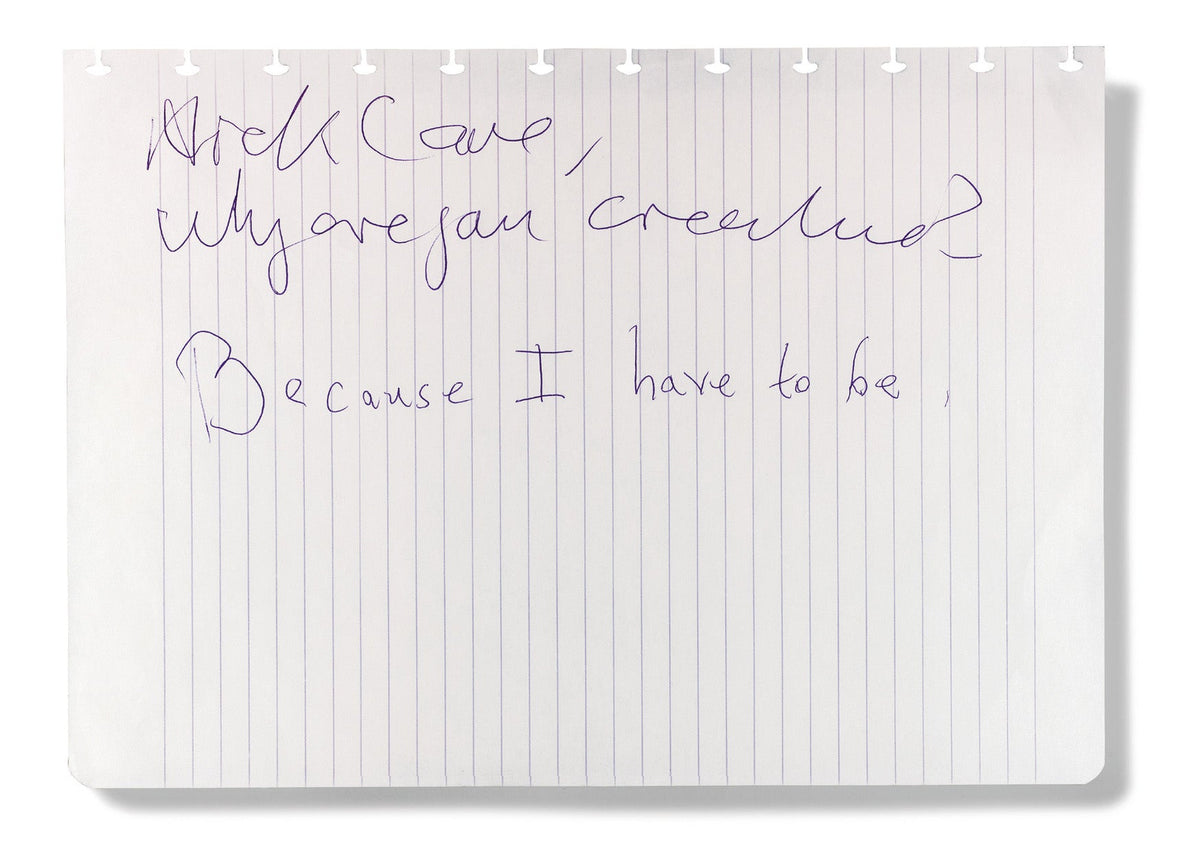 Nick Cave,
why are you creative?
Because I have to be.